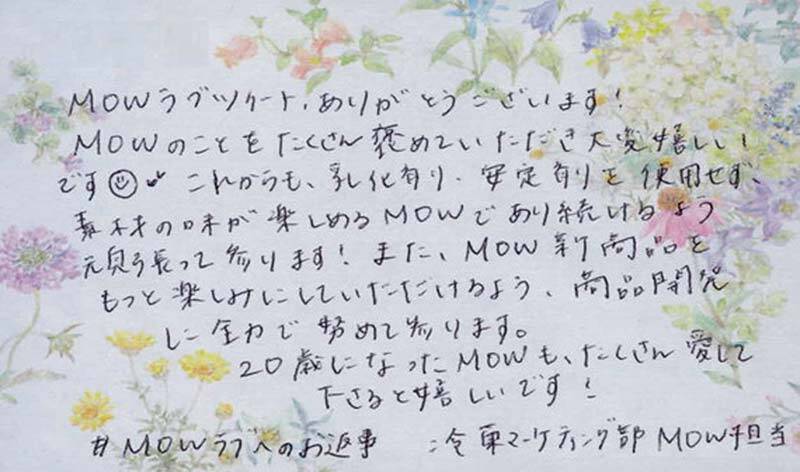 MOWラブツイート、ありがとうございます!
MOWのことをたくさん褒めていただき大変嬉しい
です☺ これからも、乳化剤・安定剤を使用せず、
素材の味が楽しめるMOWであり続けるよう
頑張って参ります!また、MOW新商品を
もっと楽しみにしていただけるよう、商品開発
に全力で努めて参ります。
20歳になったMOWも、たくさん愛して
下さると嬉しいです!
#MOWラブへのお返事 冷菓マーケティング部 MOW担当